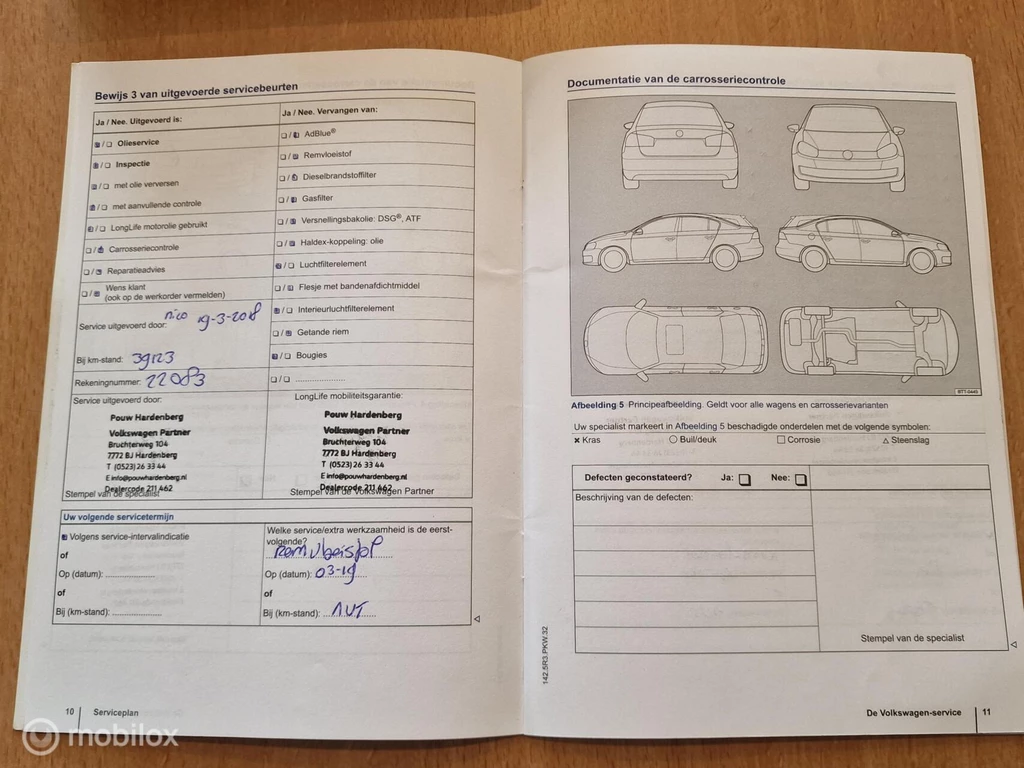 Bewijs 3 van uitgevoerde servicebeurten
Ja / Nee. Uitgevoerd is:
Olieservice
Inspectie
met olie verversen
met aanvullende controle
LongLife motorolie gebruikt
Carrosseriecontrole
Reparatieadvies
Wens klant
(ook op de werkorder vermelden)
Service uitgevoerd door: nico 19-3-2018
Bij km-stand: 39123
Rekeningnummer: 22083
Ja / Nee. Vervangen van:
AdBlue®
Remvloeistof
Dieselbrandstoffilter
Gasfilter
Versnellingsbakolie: DSG®, ATF
Haldex-koppeling: olie
Luchtfilterelement
Flesje met bandenafdichtmiddel
Interieurluchtfilterelement
Getande riem
Bougies
Service uitgevoerd door:
Pouw Hardenberg
Volkswagen Partner
Bruchterweg 104
7772 BJ Hardenberg
T (0523) 26 33 44
E info@pouwhardenberg.nl
Dealercode 211 462
Stempel van de specialist
LongLife mobiliteitsgarantie:
Pouw Hardenberg
Volkswagen Partner
Bruchterweg 104
7772 BJ Hardenberg
T (0523) 26 33 44
E info@pouwhardenberg.nl
Dealercode 211 462
Stempel van de Volkswagen Partner
Uw volgende servicetermijn
Volgens service-intervalindicatie
of
Op (datum): ....................
of
Bij (km-stand): ....................
Welke service/extra werkzaamheid is de eerst-
volgende?
Op (datum): 03-19
of
Bij (km-stand):
10 Serviceplan
Documentatie van de carrosseriecontrole
BTT-0445
Afbeelding 5 Principeafbeelding. Geldt voor alle wagens en carrosserievarianten
Uw specialist markeert in Afbeelding 5 beschadigde onderdelen met de volgende symbolen:
× Kras ○ Buil/deuk □ Corrosie △ Steenslag
Defecten geconstateerd? Ja: □ Nee: □
Beschrijving van de defecten:
Stempel van de specialist
142.5R3.PKW.32
De Volkswagen-service 11
mobilox